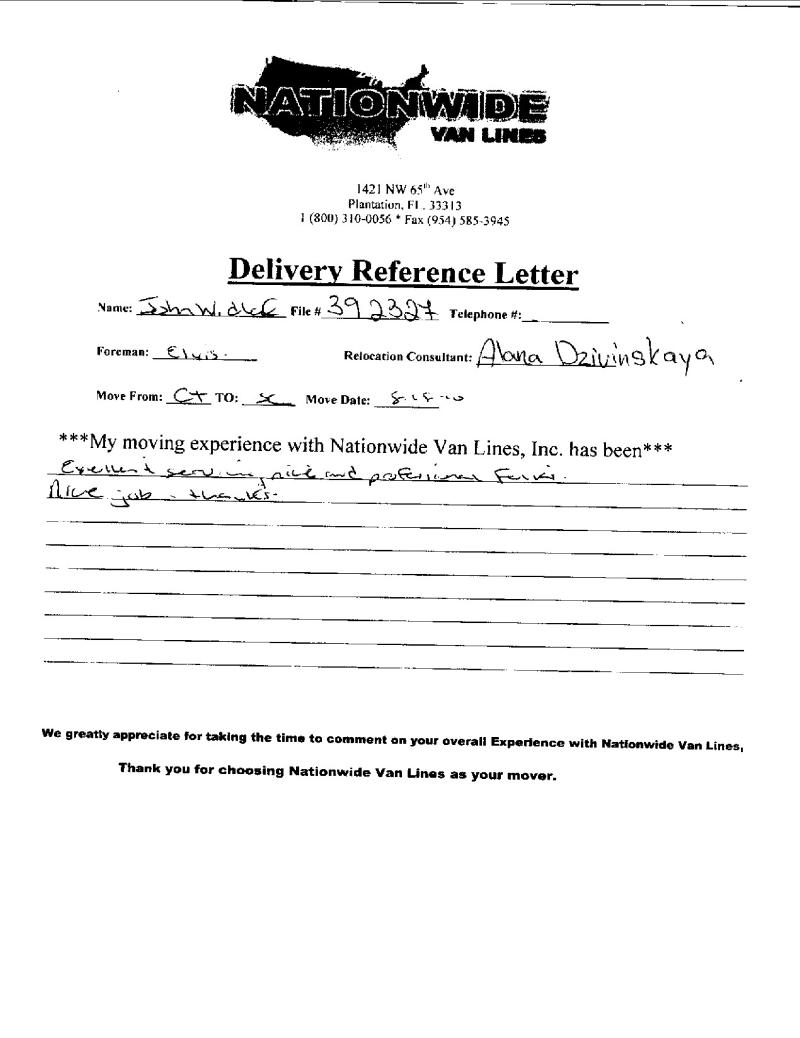 NATIONWIDE
VAN LINES
1421 NW 65th Ave
Plantation, FL. 33313
1 (800) 310-0056 * Fax (954) 585-3945
Delivery Reference Letter
Name: John W. File # 392327 Telephone #:
Foreman: Elvis. Relocation Consultant: Alana Dzivinskaya
Move From: CT TO: Move Date:
***My moving experience with Nationwide Van Lines, Inc. has been***
Excellent and professional
Nice job - thanks.
We greatly appreciate for taking the time to comment on your overall Experience with Nationwide Van Lines,
Thank you for choosing Nationwide Van Lines as your mover.